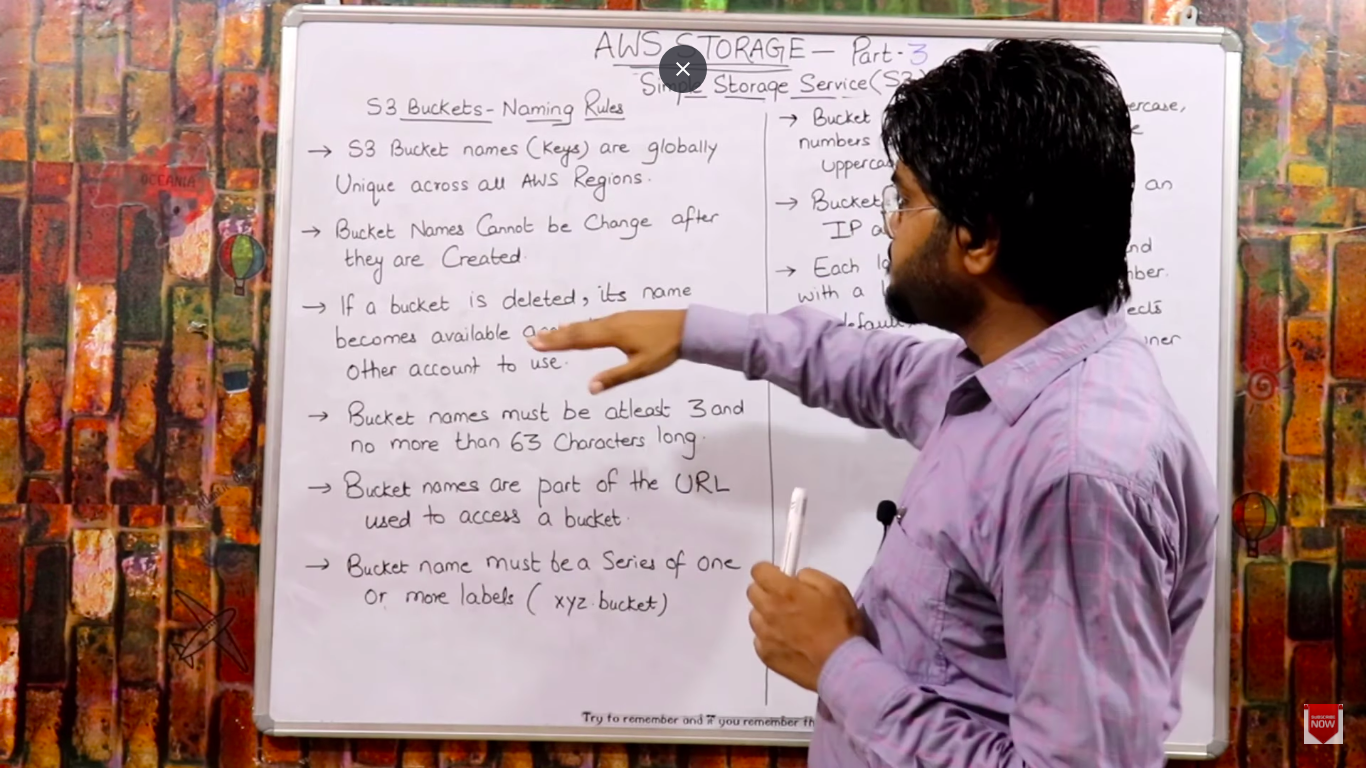 AWS STORAGE - Part-3
Simple Storage Service (S3)
S3 Buckets - Naming Rules
→ S3 Bucket names (Keys) are globally
Unique across all AWS Regions.
→ Bucket Names Cannot be Change after
they are Created.
→ If a bucket is deleted, its name
becomes available
other account to use.
→ Bucket names must be atleast 3 and
no more than 63 Characters long.
→ Bucket names are part of the URL
used to access a bucket.
→ Bucket name must be a Series of one
Or more labels ( xyz.bucket)
→ Bucket
numbers
→ Bucket
an
IP
→ Each
with a
Try to remember and if you remember
OCEANIA
SUBSCRIBE
NOW